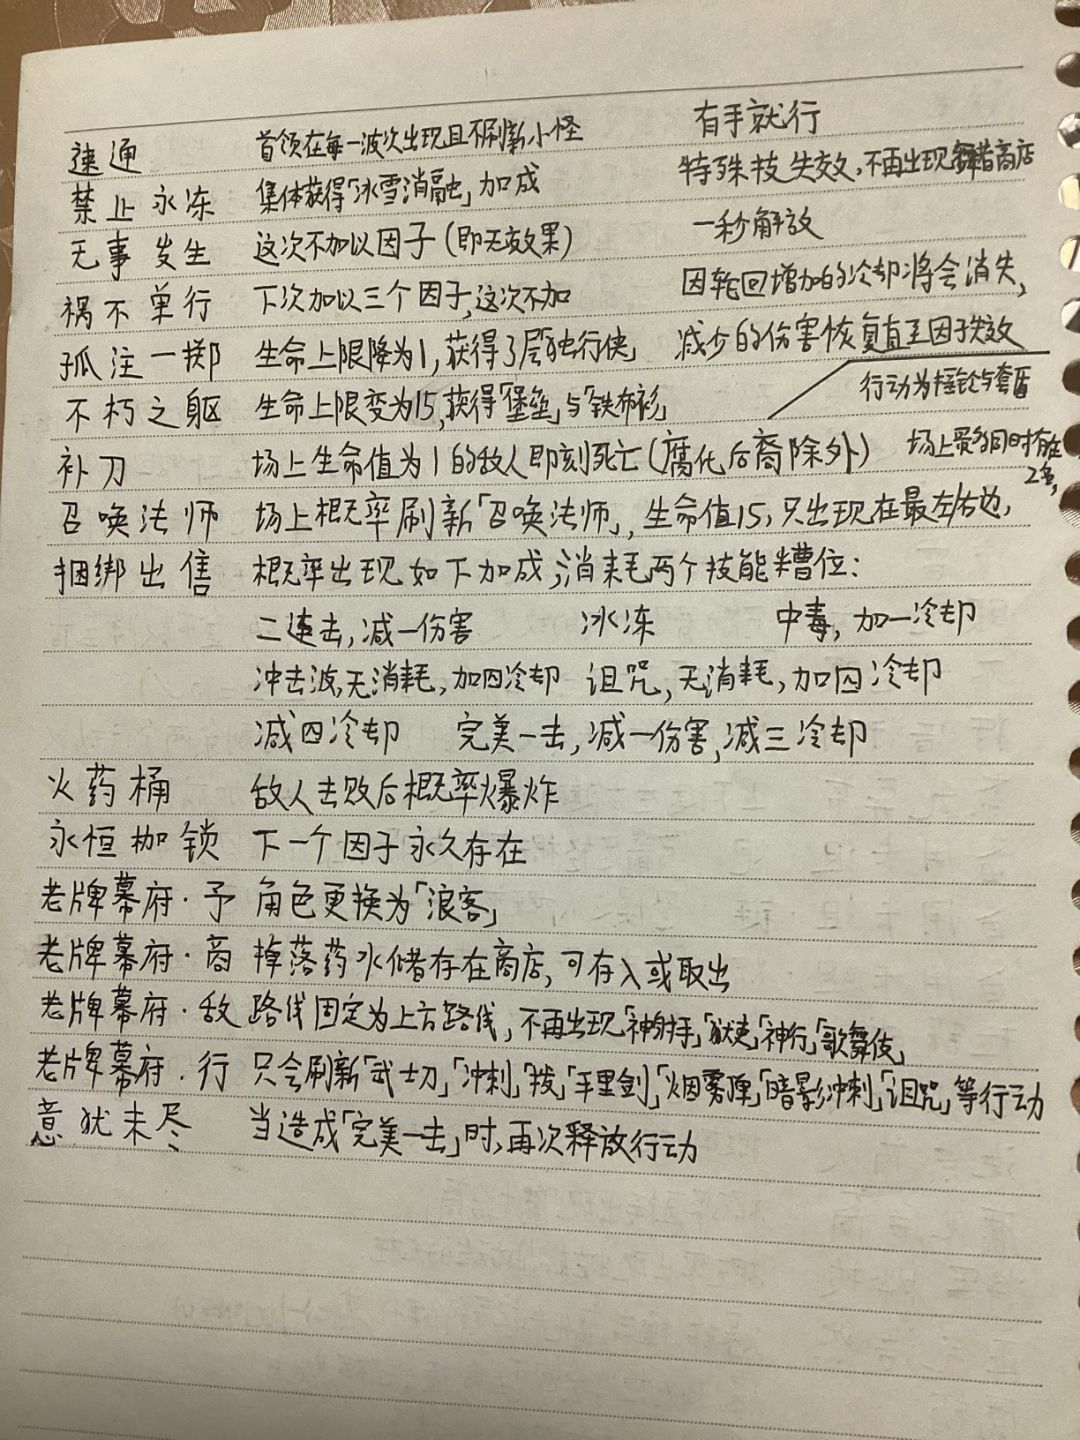 速通 首领在每一波次出现且不刷新小怪 有手就行
禁止永冻 集体获得「冰雪消融」加成 特殊技失效,不再出现商店
无事发生 这次不加以因子(即无效果) 一秒解放
祸不单行 下次加以三个因子,这次不加 因轮回增加的冷却将会消失,
孤注一掷 生命上限降为1,获得了层「独行侠」 减少的伤害恢复直至因子失效
不朽之躯 生命上限变为15,获得「堡垒」与「铁布衫」 行动为
补刀 场上生命值为1的敌人即刻死亡(腐化后裔除外) 场上最多同时存在2名,
召唤法师 场上概率刷新「召唤法师」,生命值15,只出现在最左/右边,
捆绑出售 概率出现如下加成,消耗两个技能糟位:
二连击,减一伤害 冰冻 中毒,加一冷却
冲击波,无消耗,加四冷却 诅咒,无消耗,加四冷却
减四冷却 完美一击,减一伤害,减三冷却
火药桶 敌人击败后概率爆炸
永恒枷锁 下一个因子永久存在
老牌幕府·予 角色更换为「浪客」
老牌幕府·商 掉落药水储存在商店,可存入或取出
老牌幕府·敌 路线固定为上方路线,不再出现「神射手」「狱吏」「神行」「歌舞伎」
老牌幕府·行 只会刷新「武士刀」「冲刺」「拨」「手里剑」「烟雾弹」「暗影冲刺」「诅咒」等行动
意犹未尽 当造成「完美一击」时,再次释放行动